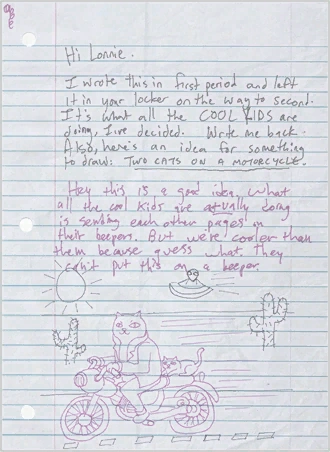 Hi Lonnie.
I wrote this in first period and left
it in your locker on the way to second.
It's what all the COOL KIDS are
doing, I've decided. Write me back.
Also, here's an idea for something
to draw: TWO CATS ON A MOTORCYCLE.
Hey this is a good idea. What
all the cool kids are actually doing
is sending each other pages on
their beepers. But we're cooler than
them because guess what. They
can't put this on a beeper.